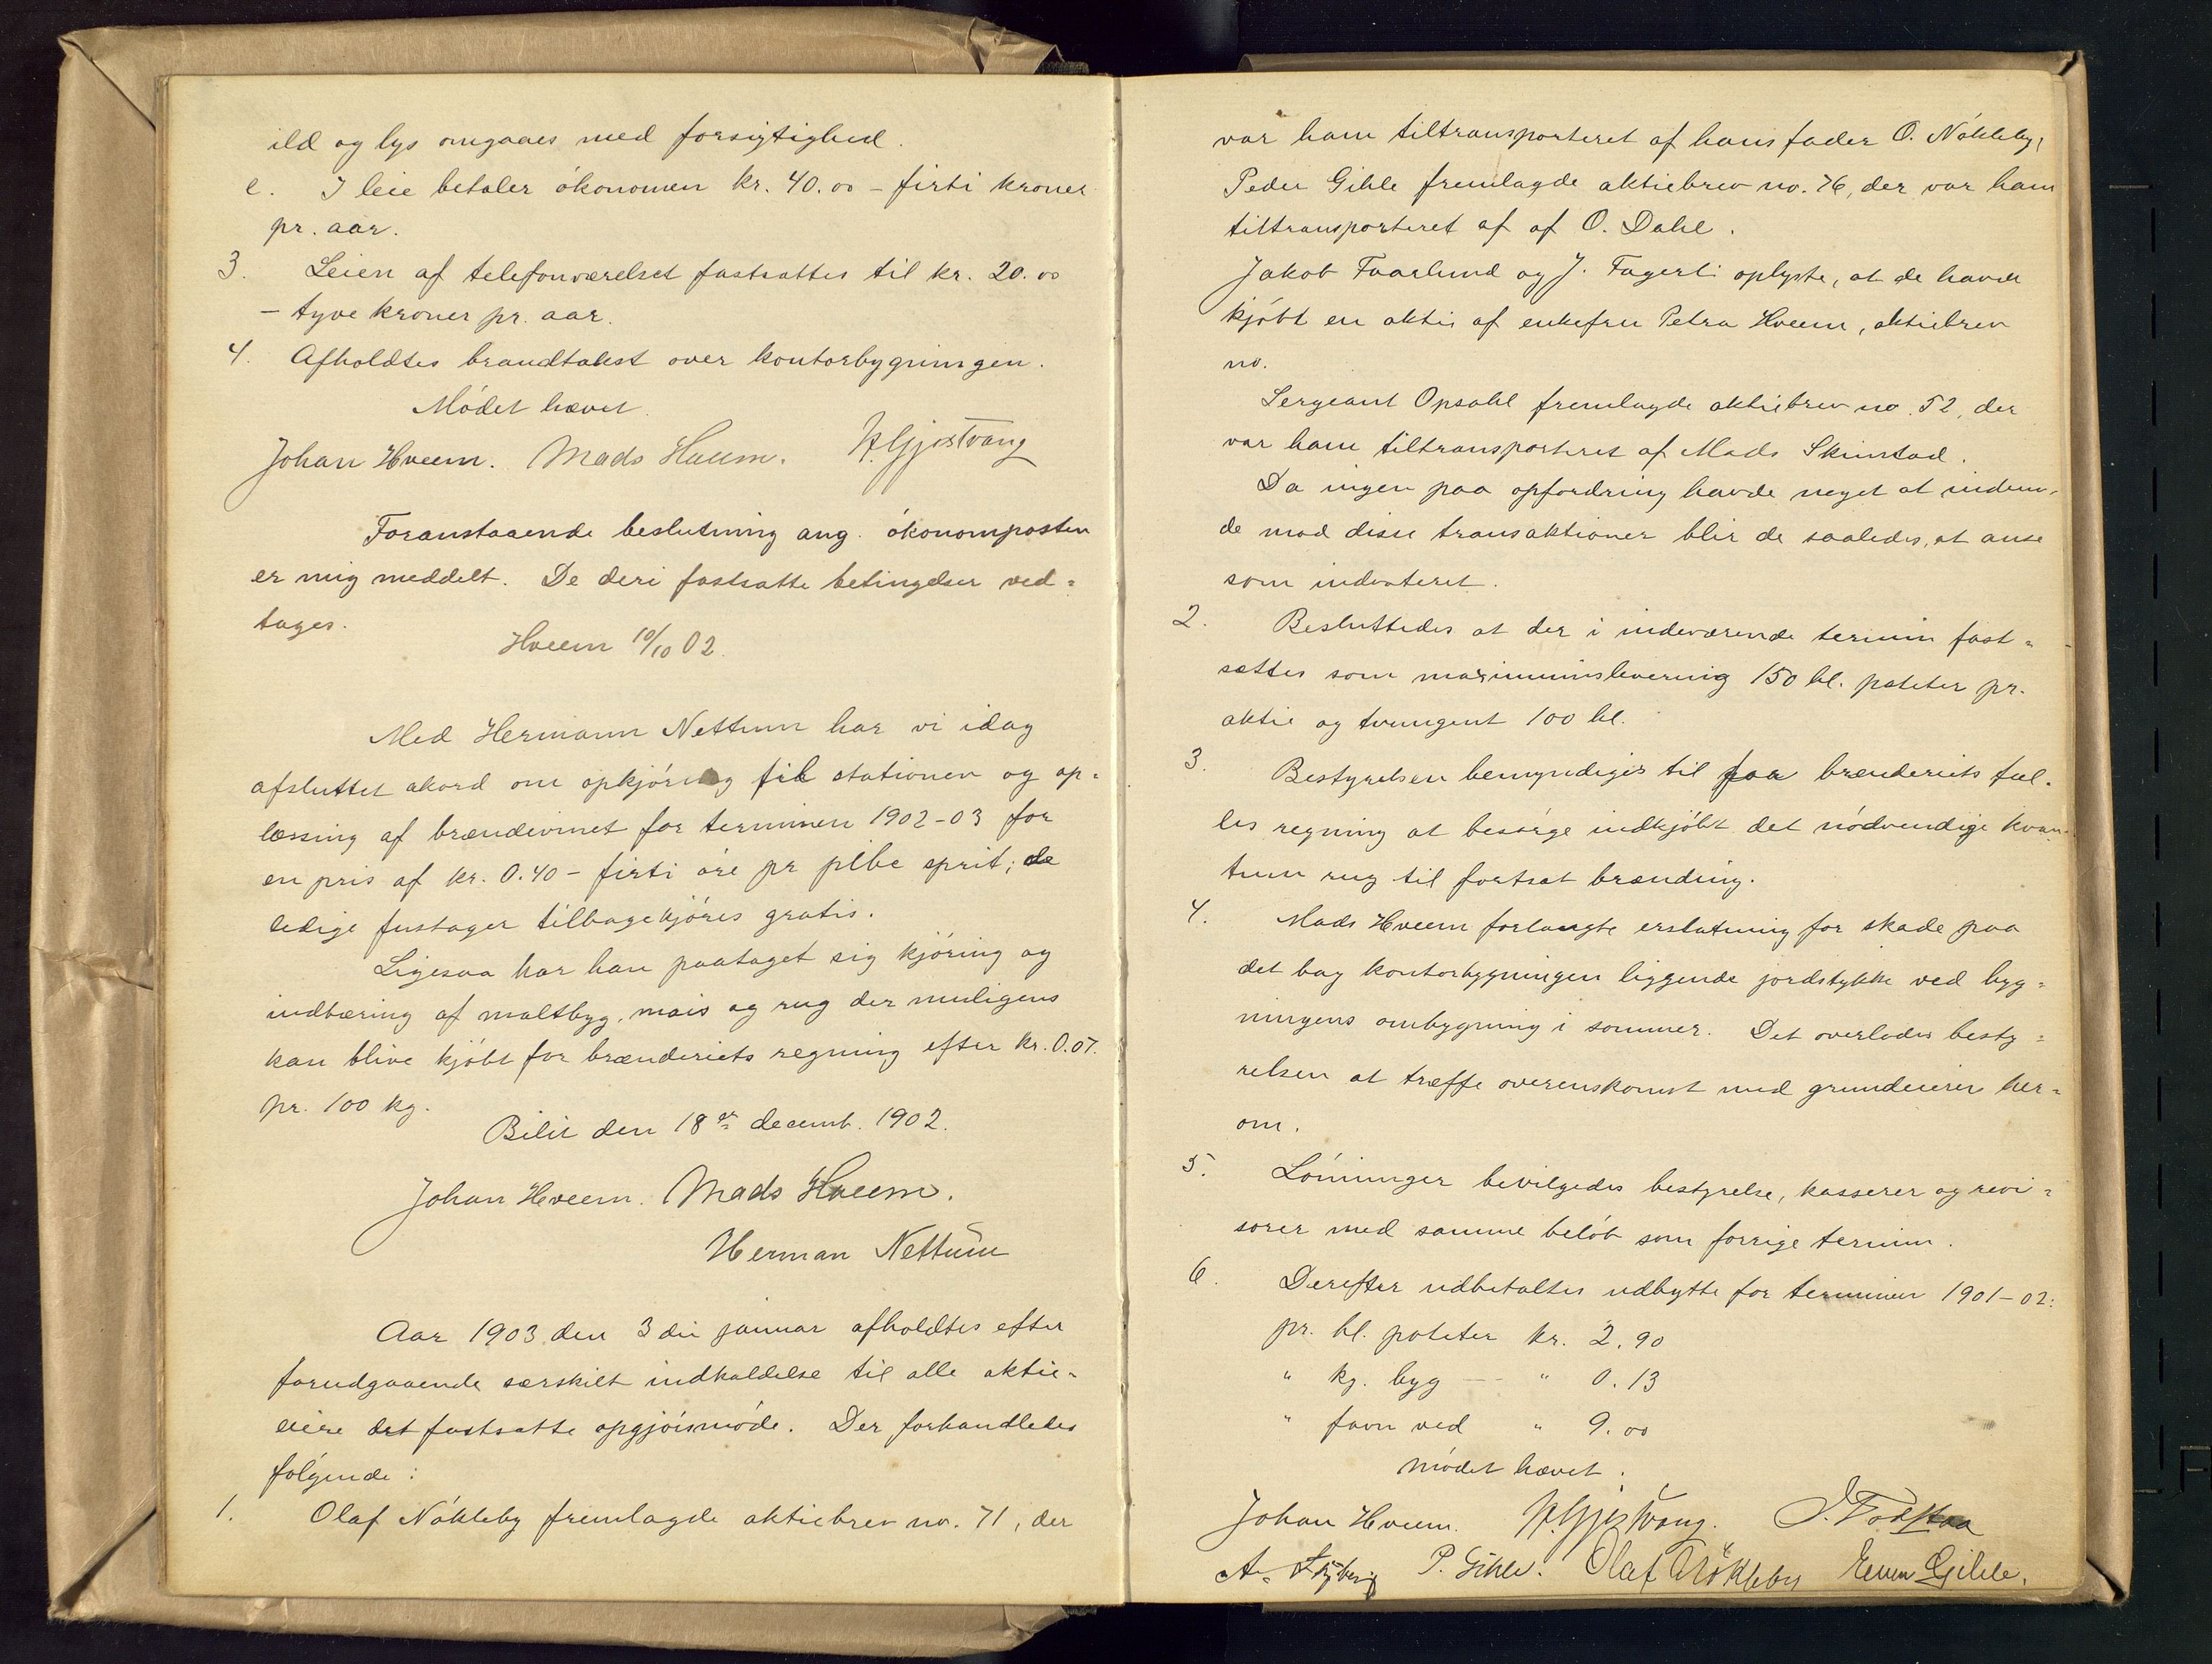 ild og lys omgaaes med forsigtighed.
e. I leie betaler ókonomen kr. 40.00 – firti kroner
pr. aar.
3. Leien af telefonværelset fastsattes til kr. 20.00
– tyve kroner pr. aar.
4. Afholdtes brandtakst over kontorbygningen.
Módet hævet.
Johan Hveem. Mads Hveem. H. Gjøstvang
Foranstaaende beslutning ang. ókonomposten
er mig meddelt. De deri fastsatte betingelser ved=
tages.
Hveem 10/10 02.
Med Hermann Nettum har vi idag
afsluttet akord om opkjóring til stationen og op=
læssing af brændevinet for terminen 1902-03 for
en pris af kr. 0.40 – firti óre pr pibe sprit; de
ledige fustager tilbagekjóres gratis.
Ligesaa har han paataget sig kjóring og
indbæring af maltbyg, mais og rug der muligens
kan blive kjóbt for brænderiets regning efter kr. 0.07.
pr. 100 kg.
Bilit den 18de decemb. 1902.
Johan Hveem. Mads Hveem.
Herman Nettum
Aar 1903 den 3die januar afholdtes efter
forudgaaende særskilt indkaldelse til alle aktie=
eiere det fastsatte opgjórsmóde. Der forhandledes
fólgende:
1. Olaf Nókleby fremlagde aktiebrev no. 71, der
var ham tiltransporteret af hans fader O. Nókleby,
Peder Gihle fremlagde aktiebrev no. 76, der var ham
tiltransporteret af af O. Dahl.
Jakob Faarlund og J. Fagerli oplyste, at de havde
kjóbt en aktie af enkefru Petra Hveem, aktiebrev
no.
Sergeant Opsahl fremlagde aktiebrev no. 52, der
var ham tiltransporteret af Mads Skinstad.
Da ingen paa opfordring havde noget at inden=
de mod disse transaktioner blir de saaledes, at anse
som indnoteret.
2. Besluttedes at der i indeværende termin fast=
sættes som maximumslevering 150 hl. poteter pr.
aktie og tvungent 100 hl.
3. Bestyrelsen bemyndiges til paa brænderiets fæl=
les regning at besórge indkjóbt det nódvendige kvan=
tum rug til fortsat brænding.
4. Mads Hveem forlangte erstatning for skade paa
det bag kontorbygningen liggende jordstykke ved byg=
ningens ombygning i sommer. Det overlodes besty=
relsen at træffe overenskomst med grundeieren her=
om.
5. Lónninger bevilgedes bestyrelse, kasserer og revi=
sorer med samme belób som forrige termin.
6. Derefter udbetaltes udbytte for terminen 1901-02:
pr. hl. poteter kr. 2.90
" kg. byg — " 0.13
" favn ved " 9.00
módet hævet.
Johan Hveem. H. Gjøstvang.
P. Gihle. Olaf Nökleby Even Gihle.